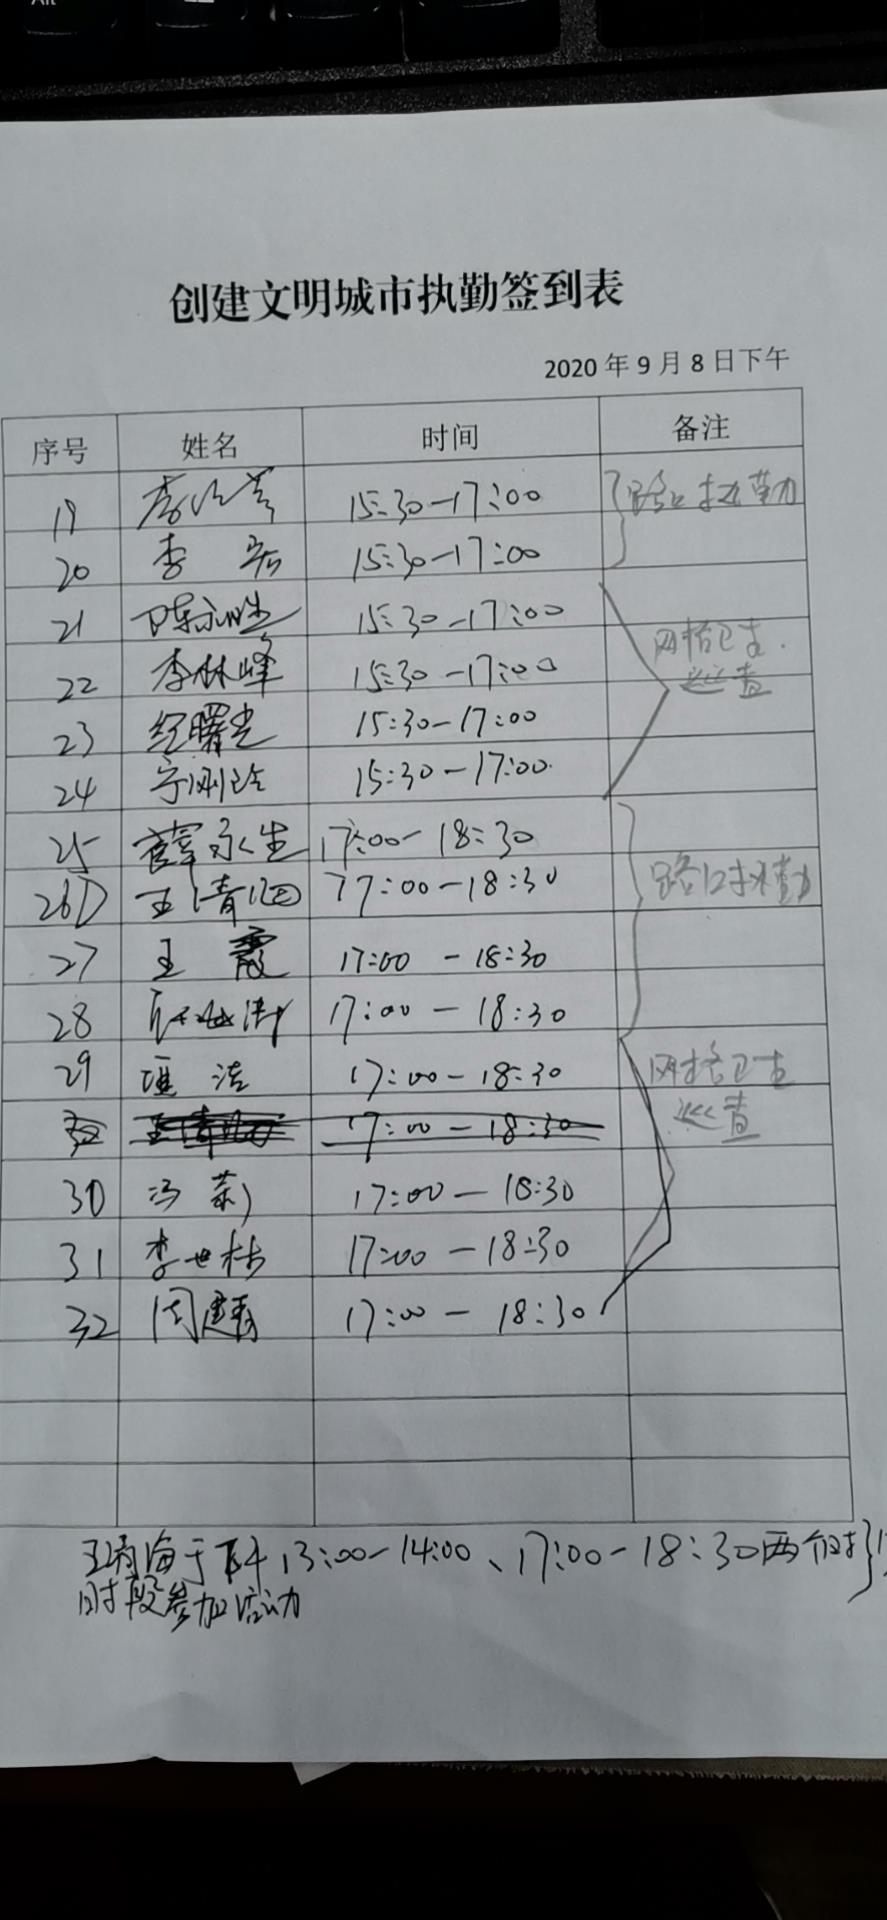 创建文明城市执勤签到表
2020年9月8日下午
序号 姓名 时间 备注
19 李 15:30-17:00 路口执勤
20 李宏 15:30-17:00
21 陈永胜 15:30-17:00 网格卫生
22 李林峰 15:30-17:00 巡查
23 纪曙光 15:30-17:00
24 宁刚 15:30-17:00
25 薛永生 17:00-18:30
26 王清 17:00-18:30 路口执勤
27 王霞 17:00-18:30
28 17:00-18:30
29 洁 17:00-18:30 网格卫生
17:00-18:30 巡查
30 冯莉 17:00-18:30
31 李世栋 17:00-18:30
32 周建 17:00-18:30
于下午13:00-14:00、17:00-18:30两个时
时段参加活动